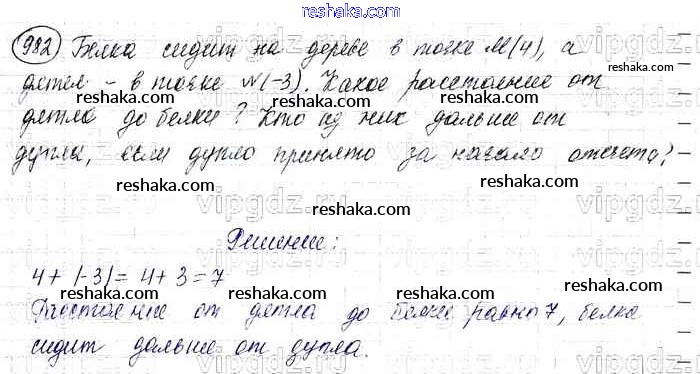 reshaka.com
982 Белка сидит на дереве в точке M(4), а
дятел - в точке N(-3). Какое расстояние от
дятла до белки? Кто из них дальше от
дупла, если дупло принято за начало отсчета?
reshaka.com reshaka.com reshaka.com
reshaka.com reshaka.com reshaka.com
Решение:
4 + |-3| = 4 + 3 = 7
Расстояние от дятла до белки равно 7, белка
сидит дальше от дупла.
reshaka.com reshaka.com reshaka.com
reshaka.com reshaka.com reshaka.com
reshaka.com